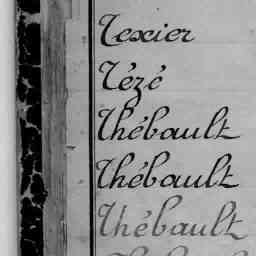 Texier
Tézé
Thébault
Thébault
Thébault